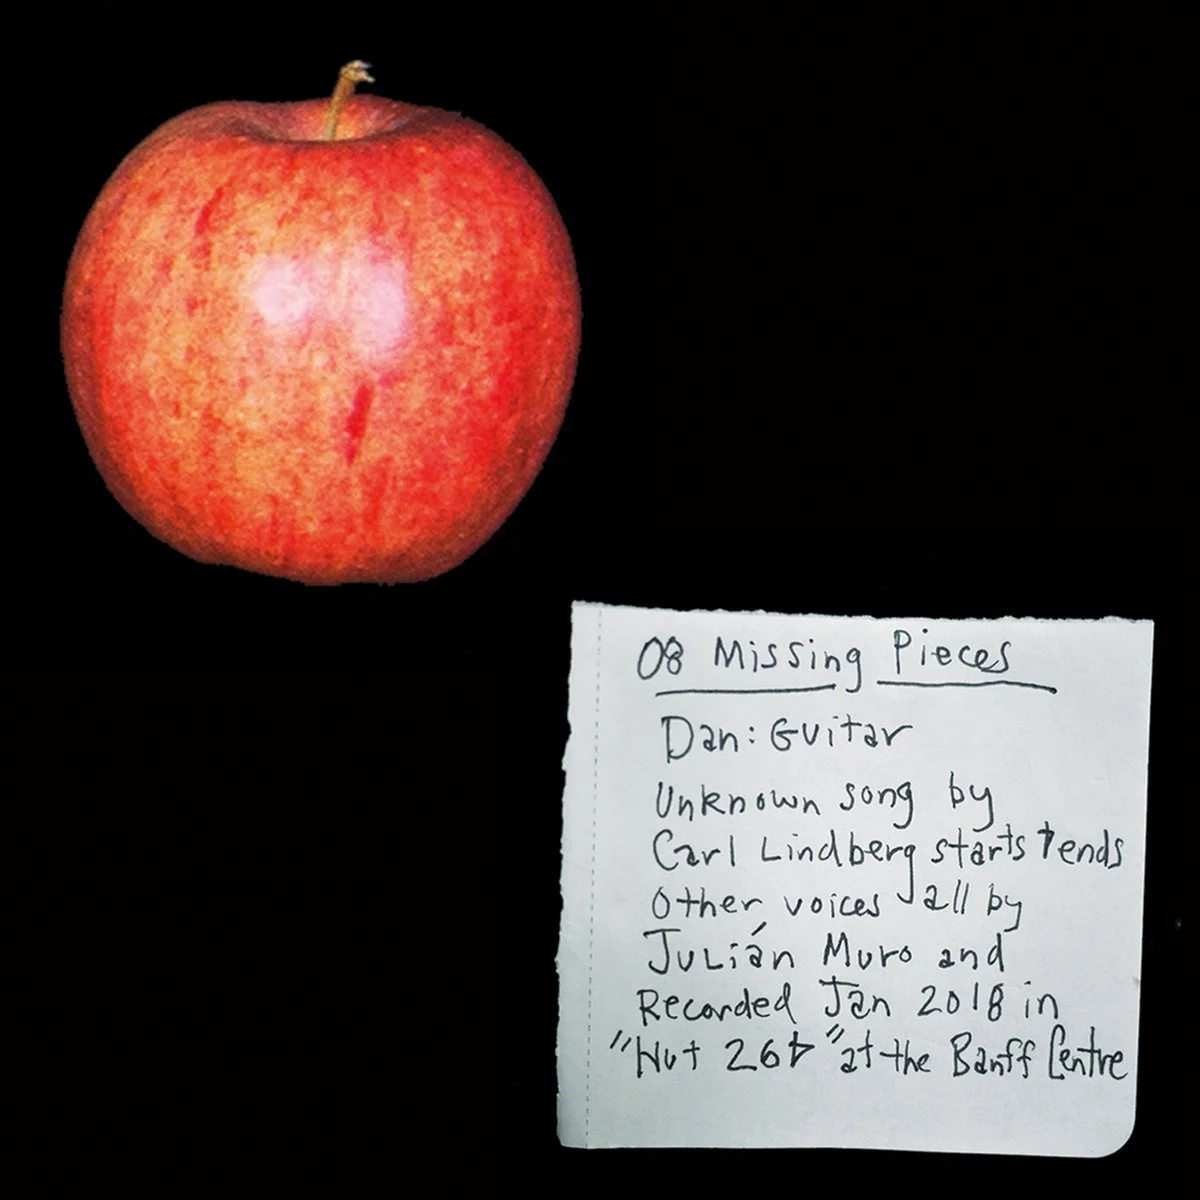 08 Missing Pieces
Dan: Guitar
Unknown song by
Carl Lindberg starts + ends
Other voices all by
Julián Muro and
Recorded Jan 2018 in
"Hut 26" at the Banff Centre